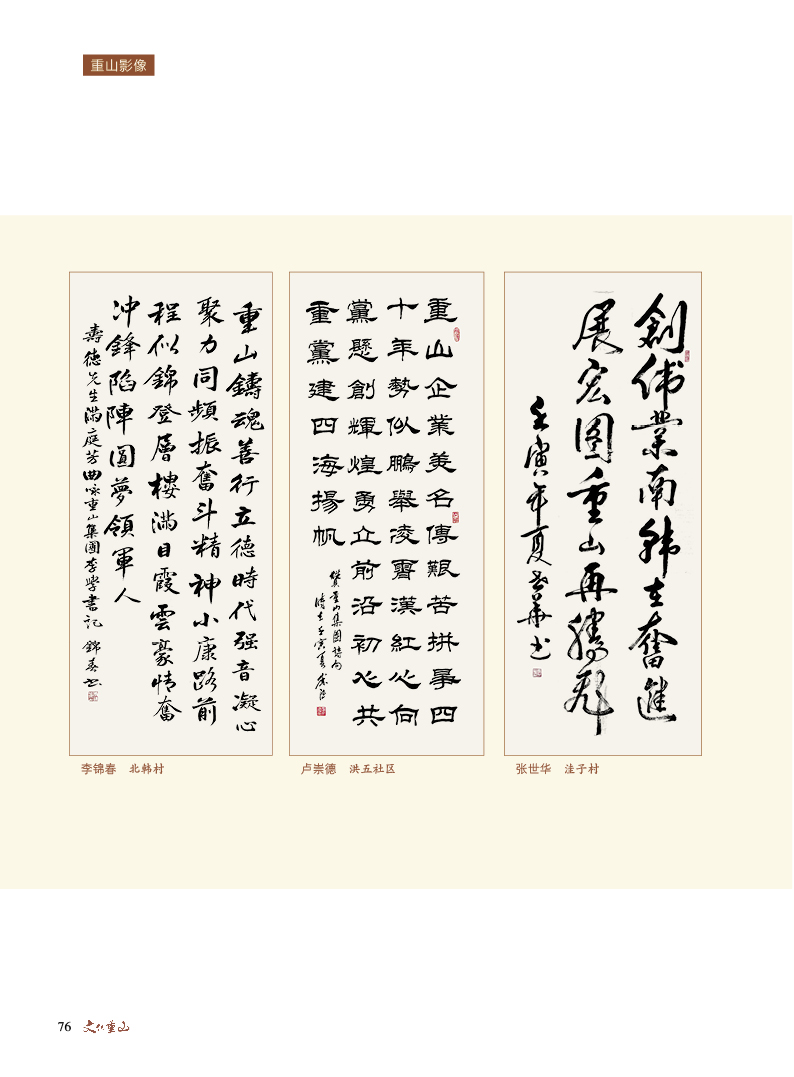 重山影像
重山鑄魂善行立德時代强音凝心
聚力同頻振奮斗精神小康路前
程似錦登層樓滿目霞雲豪情奮
冲鋒陷陣圓夢領軍人
壽德先生滿庭芳曲咏重山集團李學書記 錦春书
重山企業美名傳艱苦拼事四
十年勢似鵬舉凌霄漢紅心向
黨懸創輝煌勇立前沿初心共
重黨建四海揚帆
贊重山集團
壬寅夏
創偉業南韩在奮進
展宏图重山再騰飛
壬寅年夏世華书
李锦春 北韩村
卢崇德 洪五社区
张世华 洼子村
76 文化重山